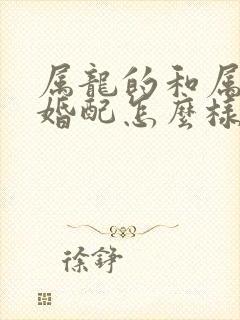 属龍的和属
婚配怎麼樣
徐錚